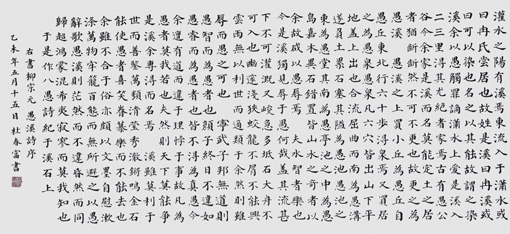 灌水之陽有溪焉東流入于瀟水或
曰冉氏嘗居也故姓是溪曰冉溪或
曰可以染也名之以其能故謂之染
溪余以愚觸罪謫瀟水上愛是溪入
二三里得其尤絕者家焉古有愚公
谷今余家是溪而名莫能定土之居
者猶齗齗然不可以不更也故更之為
愚溪 愚溪之上買小丘為愚丘自
愚丘東北行六十步得泉焉又買居
之為愚泉愚泉凡六穴皆出山下平
地蓋上出也合流屈曲而南為愚溝
遂負土累石塞其隘為愚池愚池之
東為愚堂其南為愚亭池之中為愚
島嘉木異石錯置皆山水之奇者以
余故咸以愚辱焉 夫水智者樂也
今是溪獨見辱於愚何哉蓋其流甚
下不可以灌溉又峻急多坻石大舟不
可入也幽邃淺狹蛟龍不屑不能興
雲雨無以利世而適類於余然則雖
辱而愚之可也 甯武子邦無道則
愚智而為愚者也顏子終日不違如
愚睿而為愚者也皆不得為真愚今
余遭有道而違于理悖于事故凡為
愚者莫我若也夫然則天下莫能爭
是溪余得專而名焉 溪雖莫利於
世而善鑒萬類清瑩秀澈鏘鳴金石
能使愚者喜笑眷慕樂而不能去也
余雖不合於俗亦頗以文墨自慰漱
滌萬物牢籠百態而無所避之以愚
辭歌愚溪則茫然而不違昏然而同
歸超鴻蒙混希夷寂寥而莫我知也
於是作八愚詩紀于溪石上
右書柳宗元愚溪詩序
乙未年五月十五日杜春富書